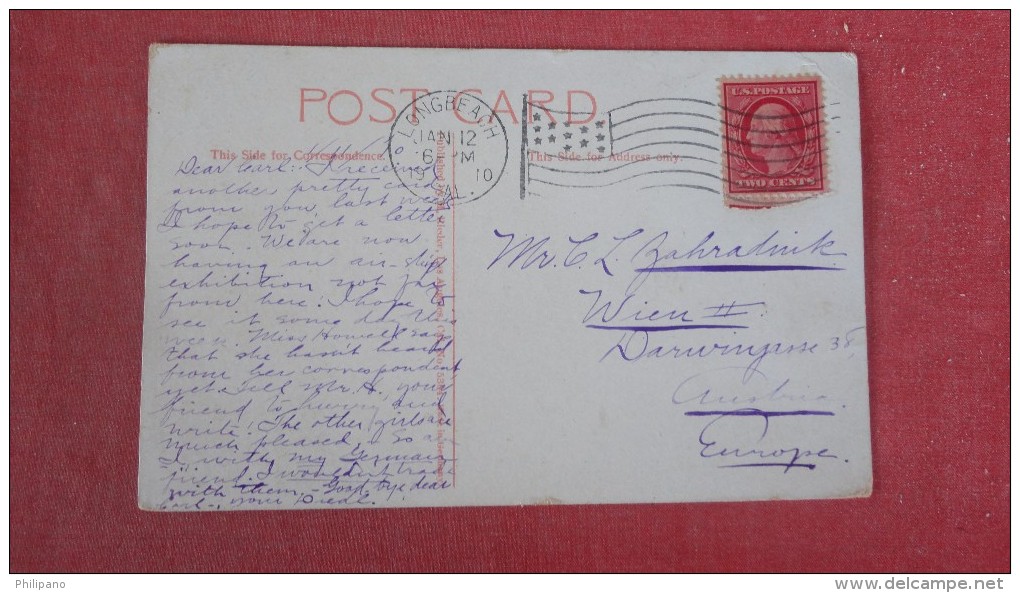 POST CARD
LONG BEACH
JAN 12
6 PM
1910
CAL.
U.S. POSTAGE
TWO CENTS
This Side for Correspondence.
This Side for Address only.
Dear Carl: I received
another pretty card
from you last week
I hope to get a letter
soon. We are now
having an air-ship
exhibition not far
from here. I hope to
see it some day this
week. Miss Howell says
that she hasn't heard
from her correspondent
yet. Tell Mr. A, your
friend to hurry and
write! The other girls are
much pleased, & so am
"I" with my German
friend. I wouldn't trade
with them. - Good bye dear
Carl -, your
Mr. C. L. Zahradnik
Wien II.
Darwingasse 38,
Austria.
Europe.
Philipano
www.delcampe.net